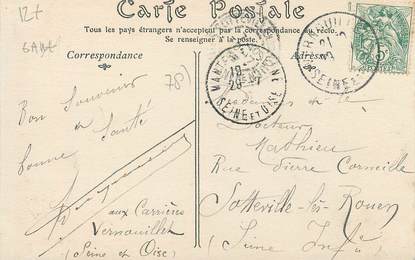 12t
Carte Postale
Tous les pays étrangers n'acceptent pas la correspondance au recto.
Se renseigner à la poste.
Correspondance
Adresse
MANTES
SEINE ET OISE
SEINE ET
5
78)
Bon Souvenir
Bonne Santé
aux Carrières
Vernouillet
(Seine et Oise)
Docteur
Mathieu
Rue Pierre Corneille
Sotteville-lès-Rouen
(Seine Infre)